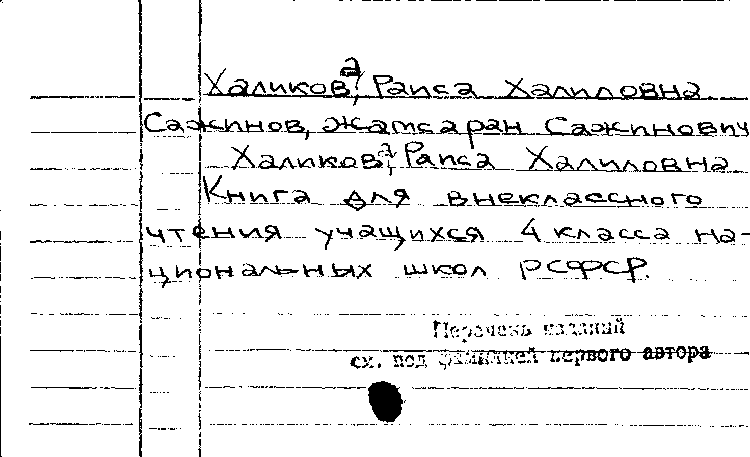 Халикова, Раиса Халиловна
Сажинов, Жамсаран Сажинович
Халикова, Раиса Халиловна
Книга для внеклассного
чтения учащихся 4 класса на-
циональных школ РСФСР.
Перечень изданий
см. под фамилией первого автора